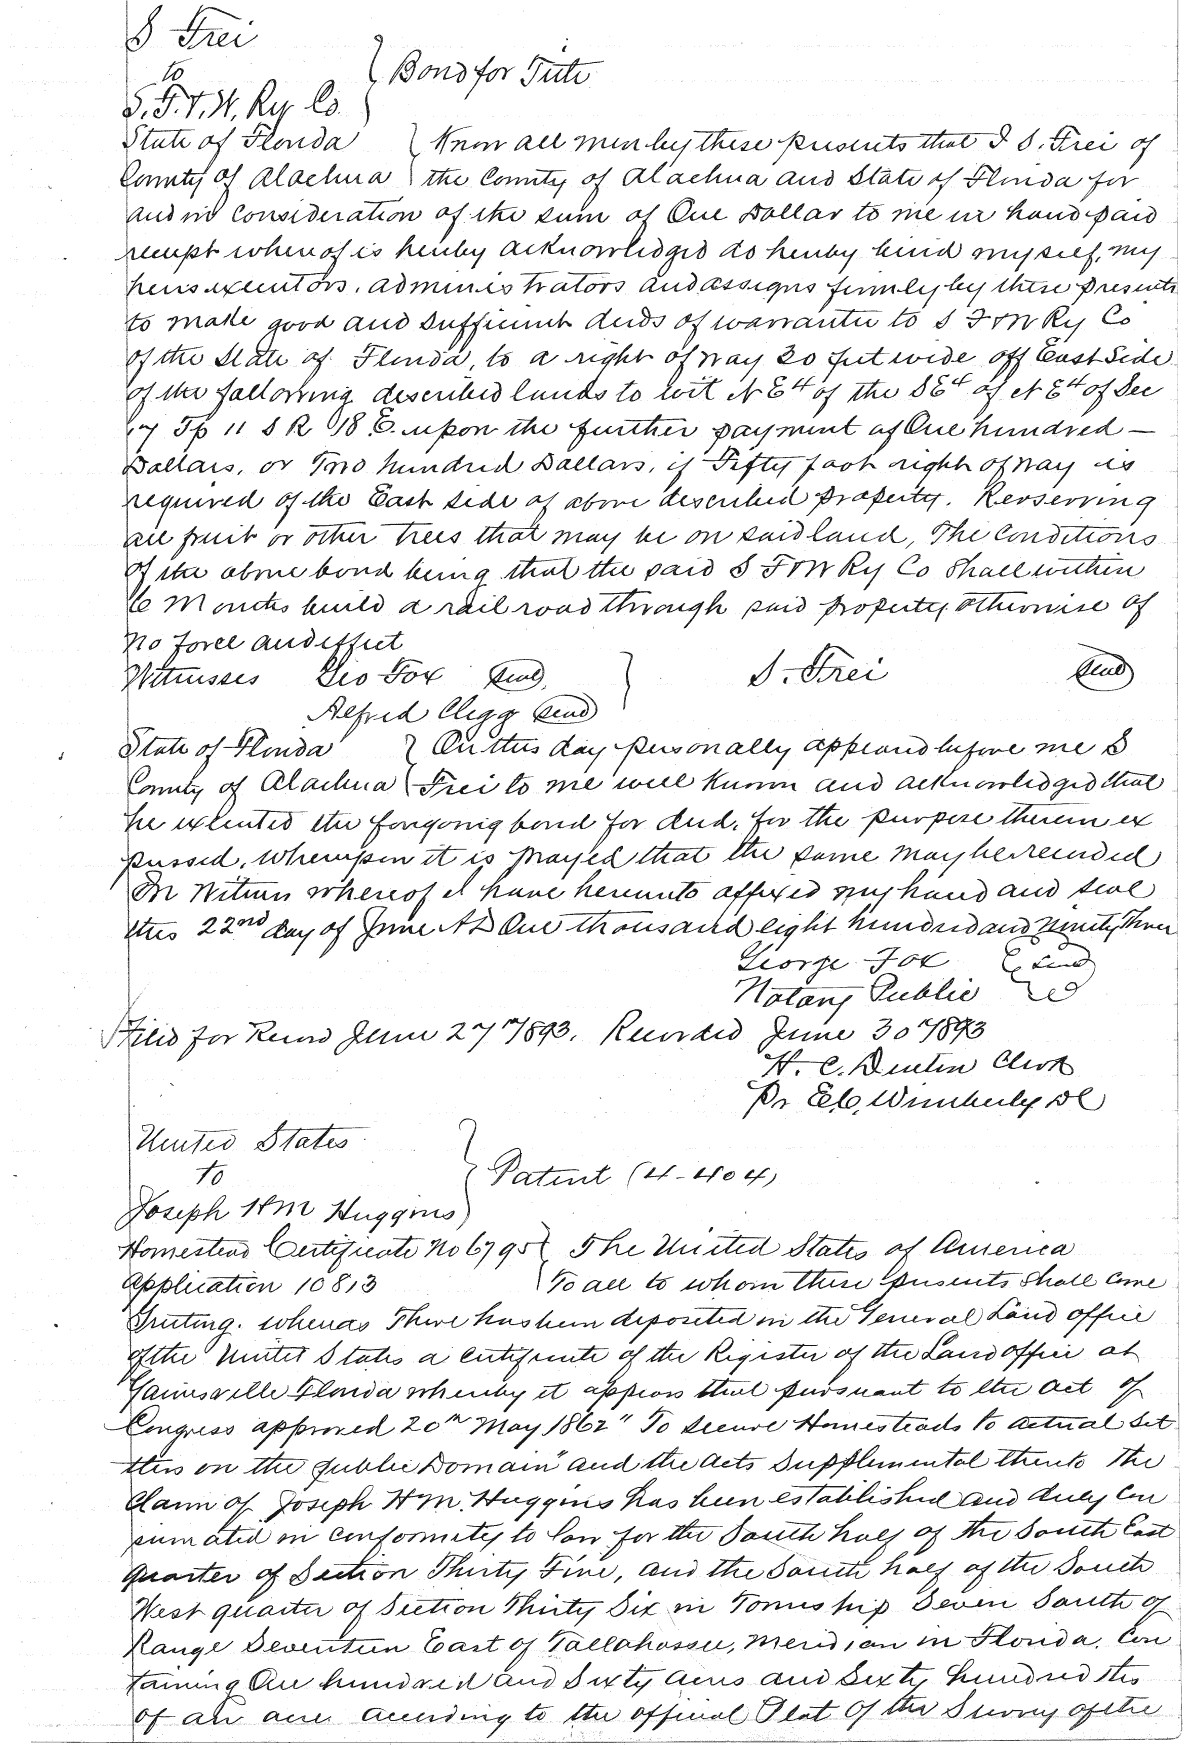 S Frei
to } Bond for Title
S. F. & W. Ry Co.
State of Florida } Know all men by these presents that I S. Frei of
County of Alachua } the County of Alachua and State of Florida for
and in consideration of the sum of One Dollar to me in hand paid
receipt whereof is hereby acknowledged do hereby bind myself, my
heirs executors, administrators and assigns firmly by these presents
to make good and sufficient deeds of warrantee to S F & W Ry Co
of the State of Florida, to a right of way 30 feet wide off East Side
of the following described lands to wit N E4 of the SE4 of N E4 of Sec
17 Tp 11 S R 18 E. upon the further payment of One hundred —
Dollars, or Two hundred Dollars, if Fifty foot right of way is
required of the East side of above described property. Rerserving
all fruit or other trees that may be on said land, The Conditions
of the above bond being that the said S F & W Ry Co Shall within
6 Months build a rail road through said property otherwise of
no force and effect
Witnesses Geo Fox Seal } S. Frei Seal
Alfred Clegg Seal
State of Florida } On this day personally appeared before me S
County of Alachua } Frei to me well known and acknowledged that
he executed the foregoing bond for deed, for the purpose therein ex
pressed, whereupon it is prayed that the same may be recorded
In Witness whereof I have hereunto affixed my hand and seal
this 22nd day of June AD One thousand eight hundred and ninety three
George Fox Seal
Notary Public
Filed for Record June 27" 1893. Recorded June 30" 1893
H. C. Denton Clerk
Pr E.C. Wimberly DC
United States
to } Patent (4-404)
Joseph H M Huggins
Homestead Certificate No 6795 } The United States of America
Application 10813 } To all to whom these presents shall come
Greeting. whereas There has been deposited in the General Land office
of the United States a certificate of the Register of the Land office at
Gainesville Florida whereby it appears that pursuant to the act of
Congress approved 20th May 1862 "To secure Homesteads to actual Set
tlers on the public Domain" and the acts Supplemental thereto the
Claim of Joseph H M. Huggins has been established and duly Con
sumated in conformity to law for the South half of the South East
quarter of Section Thirty Five, and the South half of the South
West quarter of Section Thirty Six in Township Seven South of
Range Seventeen East of Tallahassee, Meridian in Florida. Con
taining One hundred and Sixty acres and Sixty hundred ths
of an acre according to the official Plat of the Survey of the